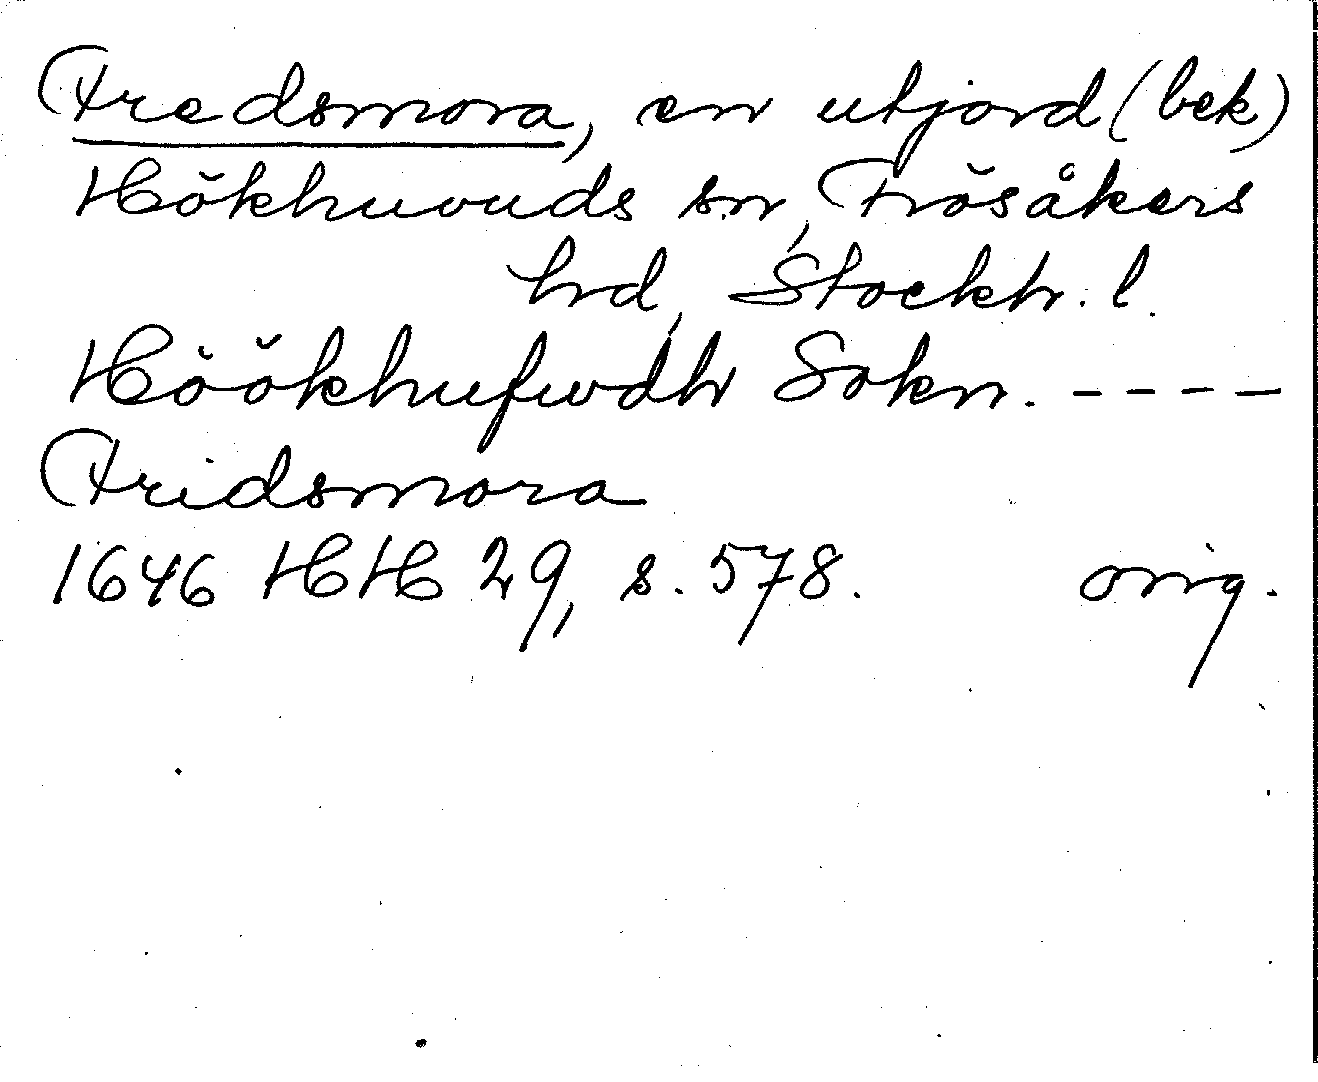 Fredsmora, en utjord (bek)
Hökhuvuds sn, Frösåkers
hd, Stockh. l.
Höökhufwdh Sokn. - - - -
Fridsmora
1646 HH 29, s. 578. orig.